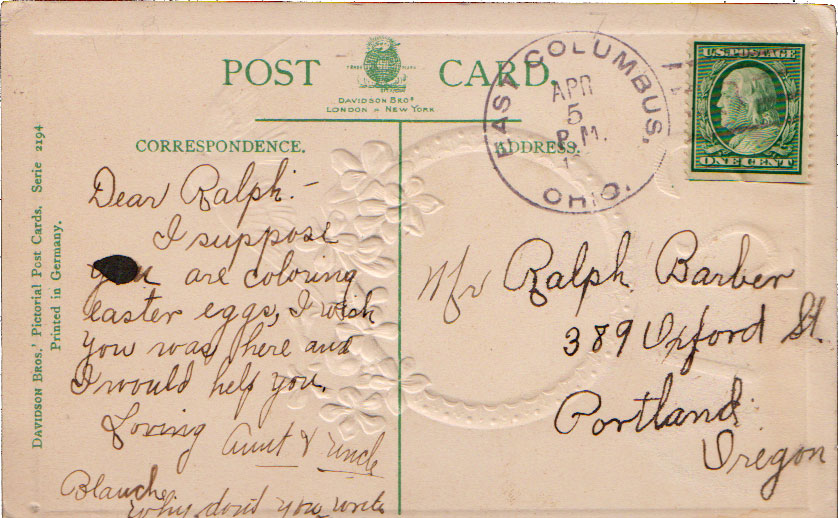 POST CARD.
TRADE MARK
DAVIDSON BROS
LONDON & NEW YORK
CORRESPONDENCE.
ADDRESS.
EAST COLUMBUS, OHIO.
APR
5
P.M.
U.S. POSTAGE
ONE CENT
DAVIDSON BROS.' Pictorial Post Cards. Serie 2194
Printed in Germany.
Dear Ralph:—
I suppose
you are coloring
easter eggs, I wish
you was here and
I would help you.
Loving Aunt & Uncle
Blanche
Why don't you write
Mr Ralph Barber
389 Oxford St.
Portland
Oregon